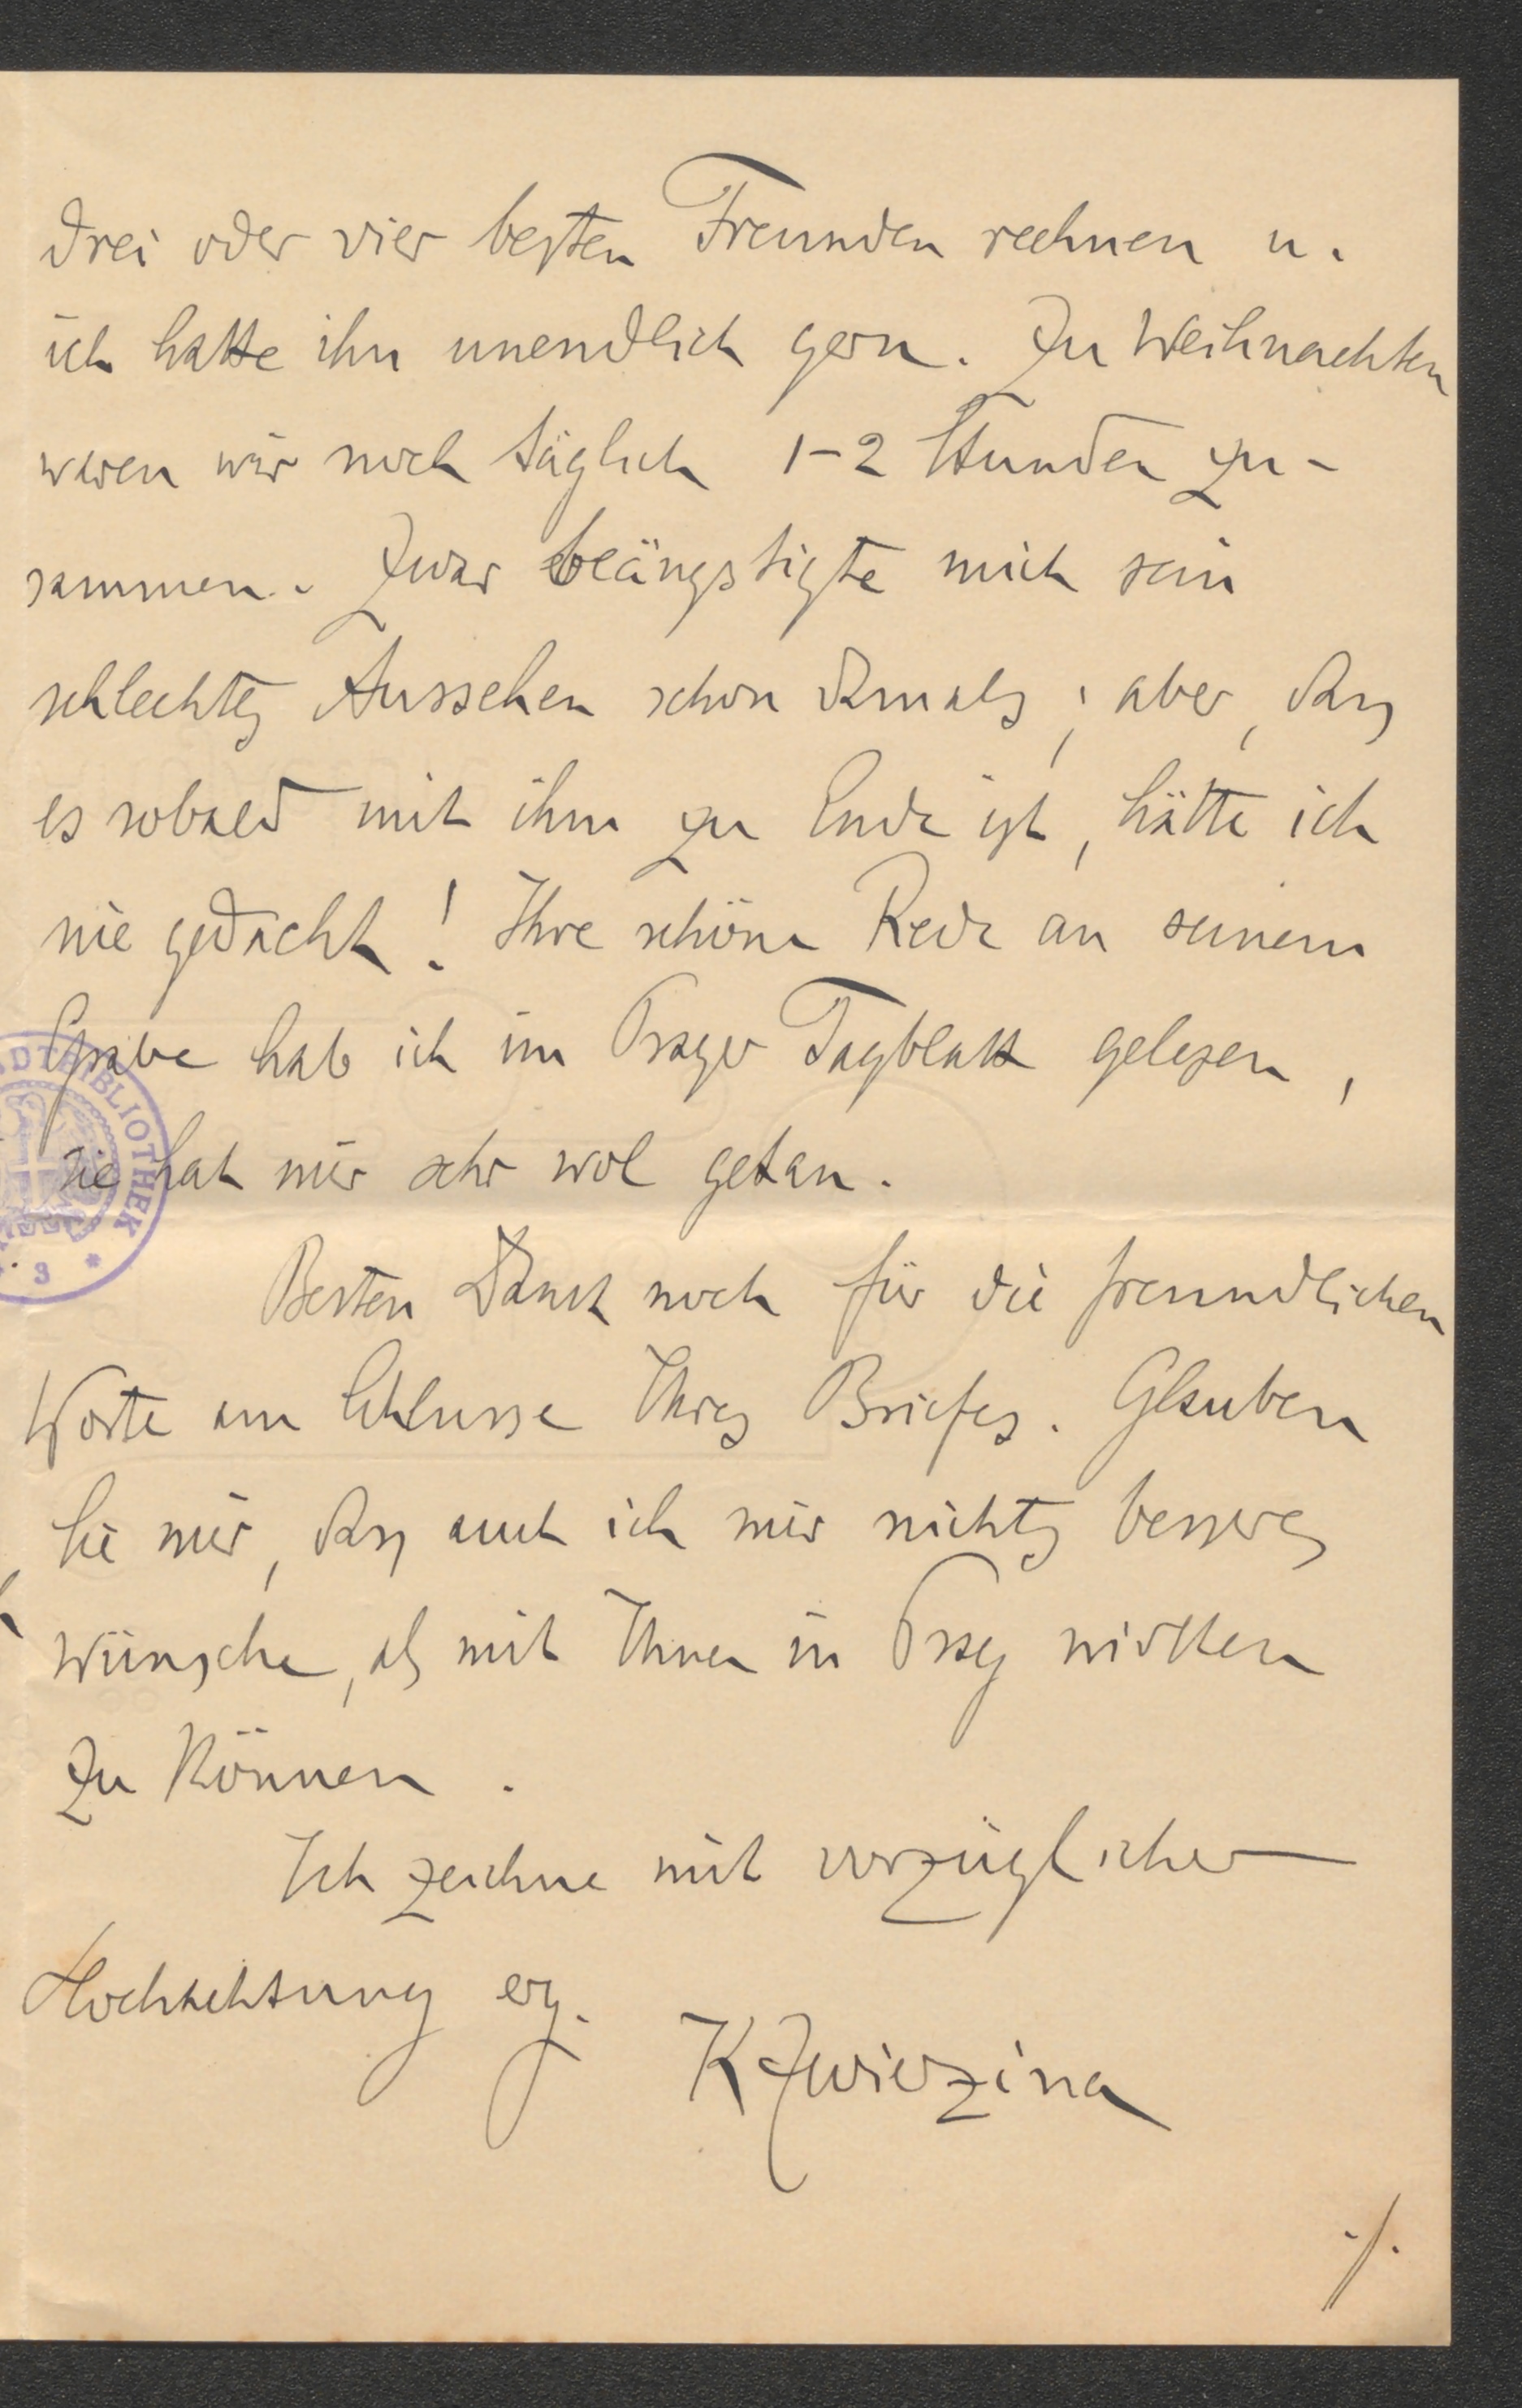 drei oder vier besten Freunden rechnen u.
ich hatte ihn unendlich gern. Zu Weihnachten
waren wir noch täglich 1-2 Stunden zu-
sammen. Zwar beängstigte mich sein
schlechtes Aussehen schon damals; aber, dass
es sobald mit ihm zu Ende ist, hätte ich
nie gedacht! Ihre schöne Rede an seinem
Grabe hab ich im Prager Tagblatt gelesen,
DTBIBLIOTHEK
sie hat mir sehr wol getan.
* 3
Besten Dank noch für die freundlichen
Worte am Schlusse Ihres Briefes. Glauben
Sie mir, dass auch ich mir nichts besseres
wünsche, als mit Ihnen in Prag wirken
zu können.
Ich zeichne mit vorzüglicher
Hochachtung erg.
KZwierzina
./.